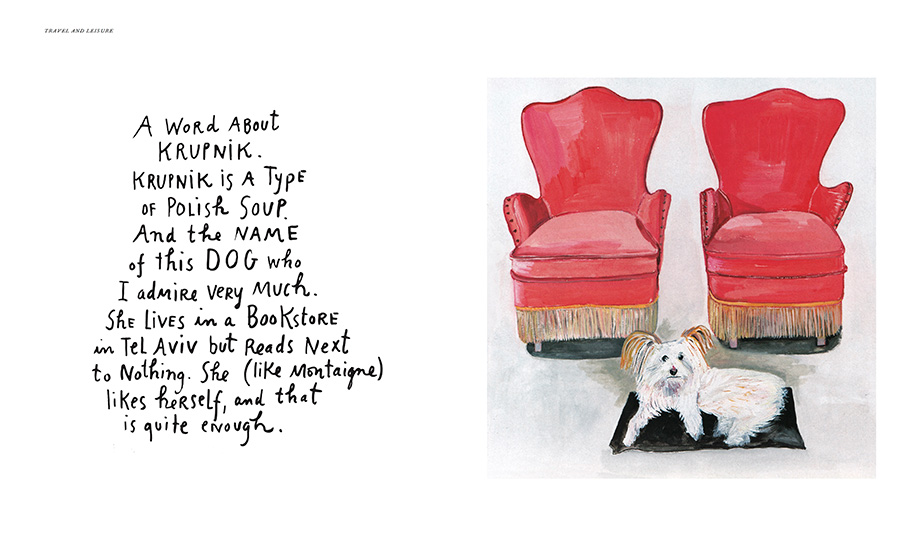 TRAVEL AND LEISURE
A WORd ABOUT
KRUPNIK.
KRUPNIK is A TYPE
OF POLISh SOUP.
And the NAME
of this DOG who
I admire VERY MUCh.
SHE LIVES in a BOOKSTORE
in TEL AVIV but READS NEXT
to NOThing. She (like MONTAIGNE)
likes herself, and that
is quite enough.